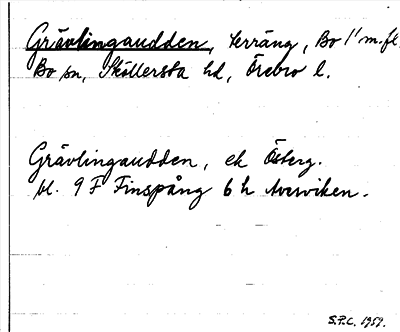 Grävlingaudden, terräng, Bo 1/1 m.fl.
Bo sn, Sköllersta hd, Örebro l.
Grävlingaudden, ek Österg.
bl. 9 F Finspång 6 h Averviken.
S.P.C. 1959.